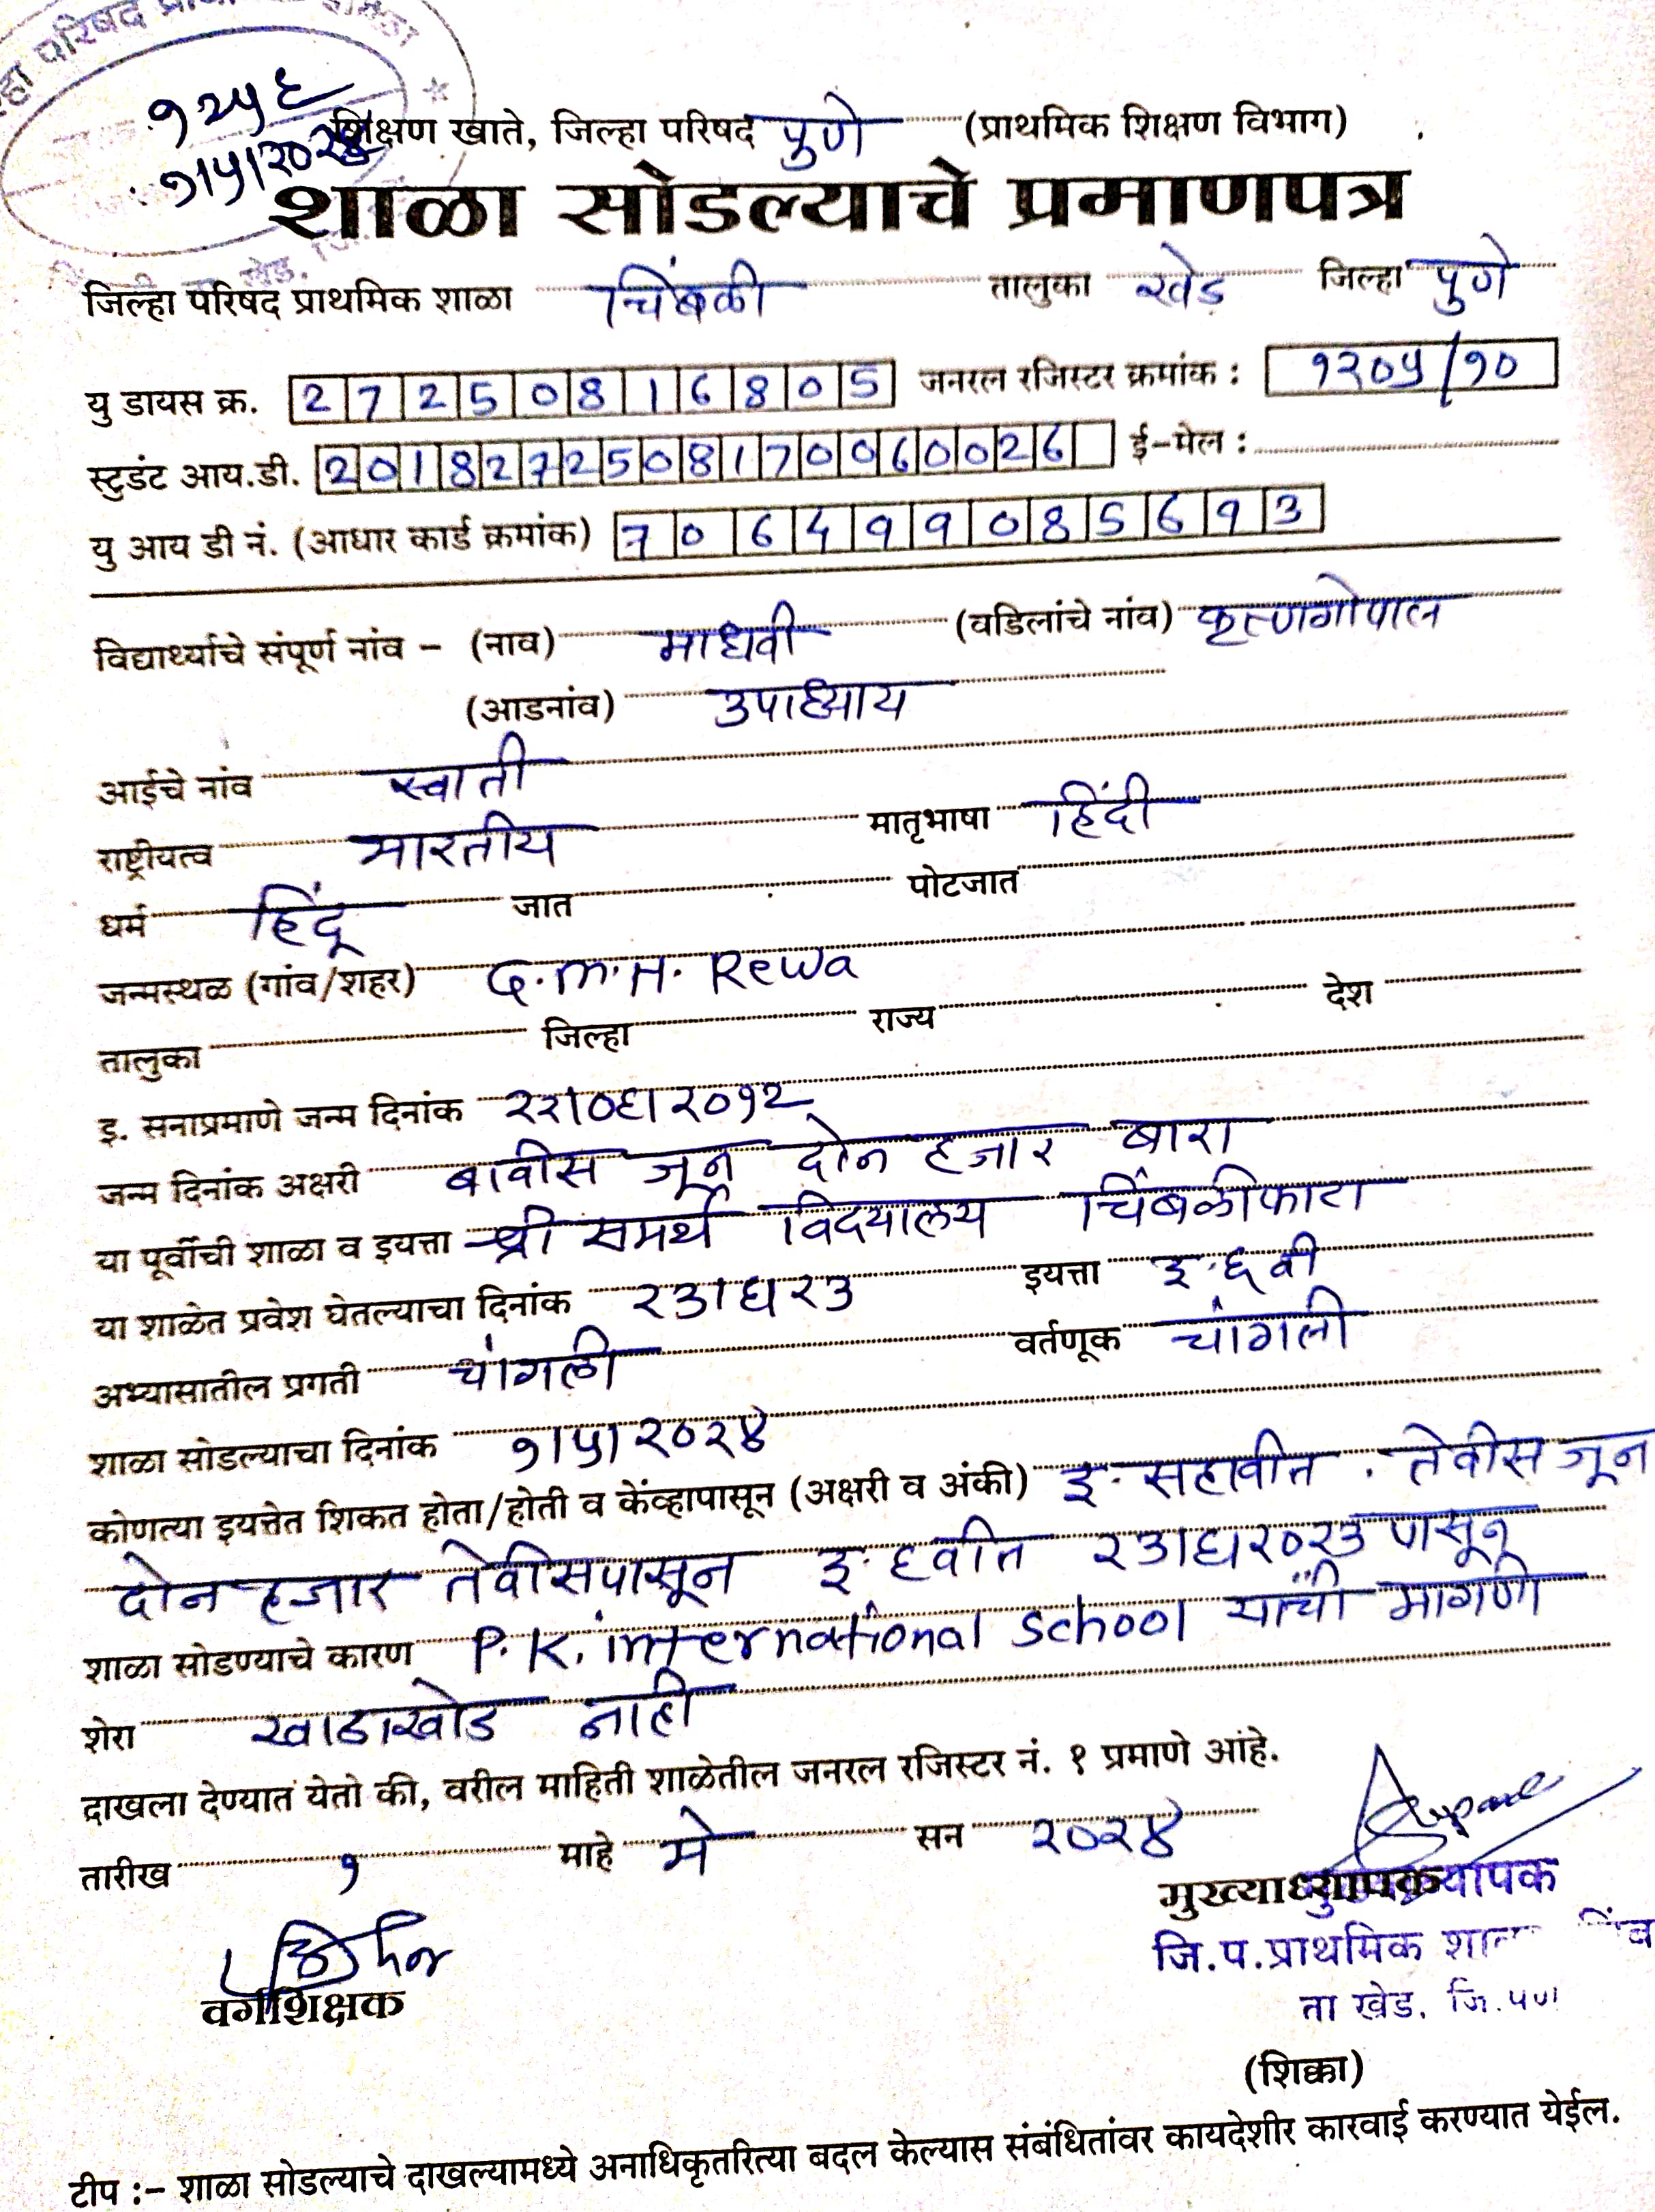 १२५६
१/५/२०२४
शिक्षण खाते, जिल्हा परिषद पुणे (प्राथमिक शिक्षण विभाग)
शाळा सोडल्याचे प्रमाणपत्र
जिल्हा परिषद प्राथमिक शाळा चिंबळी तालुका खेड जिल्हा पुणे
यु डायस क्र. 27250816805 जनरल रजिस्टर क्रमांक : १२०५/१०
स्टुडंट आय.डी. 2018272508170060026 ई-मेल :
यु आय डी नं. (आधार कार्ड क्रमांक) 706499085693
विद्यार्थ्याचे संपूर्ण नांव – (नाव) माधवी (वडिलांचे नांव) कृष्णगोपाल
(आडनांव) उपाध्याय
आईचे नांव स्वाती
राष्ट्रीयत्व भारतीय मातृभाषा हिंदी
धर्म हिंदू जात पोटजात
जन्मस्थळ (गांव/शहर) G.M.H. Rewa
तालुका जिल्हा राज्य देश
इ. सनाप्रमाणे जन्म दिनांक २२/०६/२०१२
जन्म दिनांक अक्षरी बावीस जून दोन हजार बारा
या पूर्वीची शाळा व इयत्ता श्री समर्थ विदयालय चिंबळीफाटा
या शाळेत प्रवेश घेतल्याचा दिनांक २३/६/२३ इयत्ता इ.६ वी
अभ्यासातील प्रगती चांगली वर्तणूक चांगली
शाळा सोडल्याचा दिनांक १/५/२०२४
कोणत्या इयत्तेत शिकत होता/होती व केंव्हापासून (अक्षरी व अंकी) इ. सहावीत . तेवीस जून
दोन हजार तेवीसपासून इ. ६वीत २३/६/२०२३ पासून
शाळा सोडण्याचे कारण P.K. international school यांची मागणी
शेरा खाडाखोड नाही
दाखला देण्यात येतो की, वरील माहिती शाळेतील जनरल रजिस्टर नं. १ प्रमाणे आंहे.
तारीख १ माहे मे सन २०२४
मुख्याध्यापक
जि.प.प्राथमिक
ता खेड.
वर्गशिक्षक
(शिक्का)
टीप :– शाळा सोडल्याचे दाखल्यामध्ये अनाधिकृतरित्या बदल केल्यास संबंधितांवर कायदेशीर कारवाई करण्यात येईल.